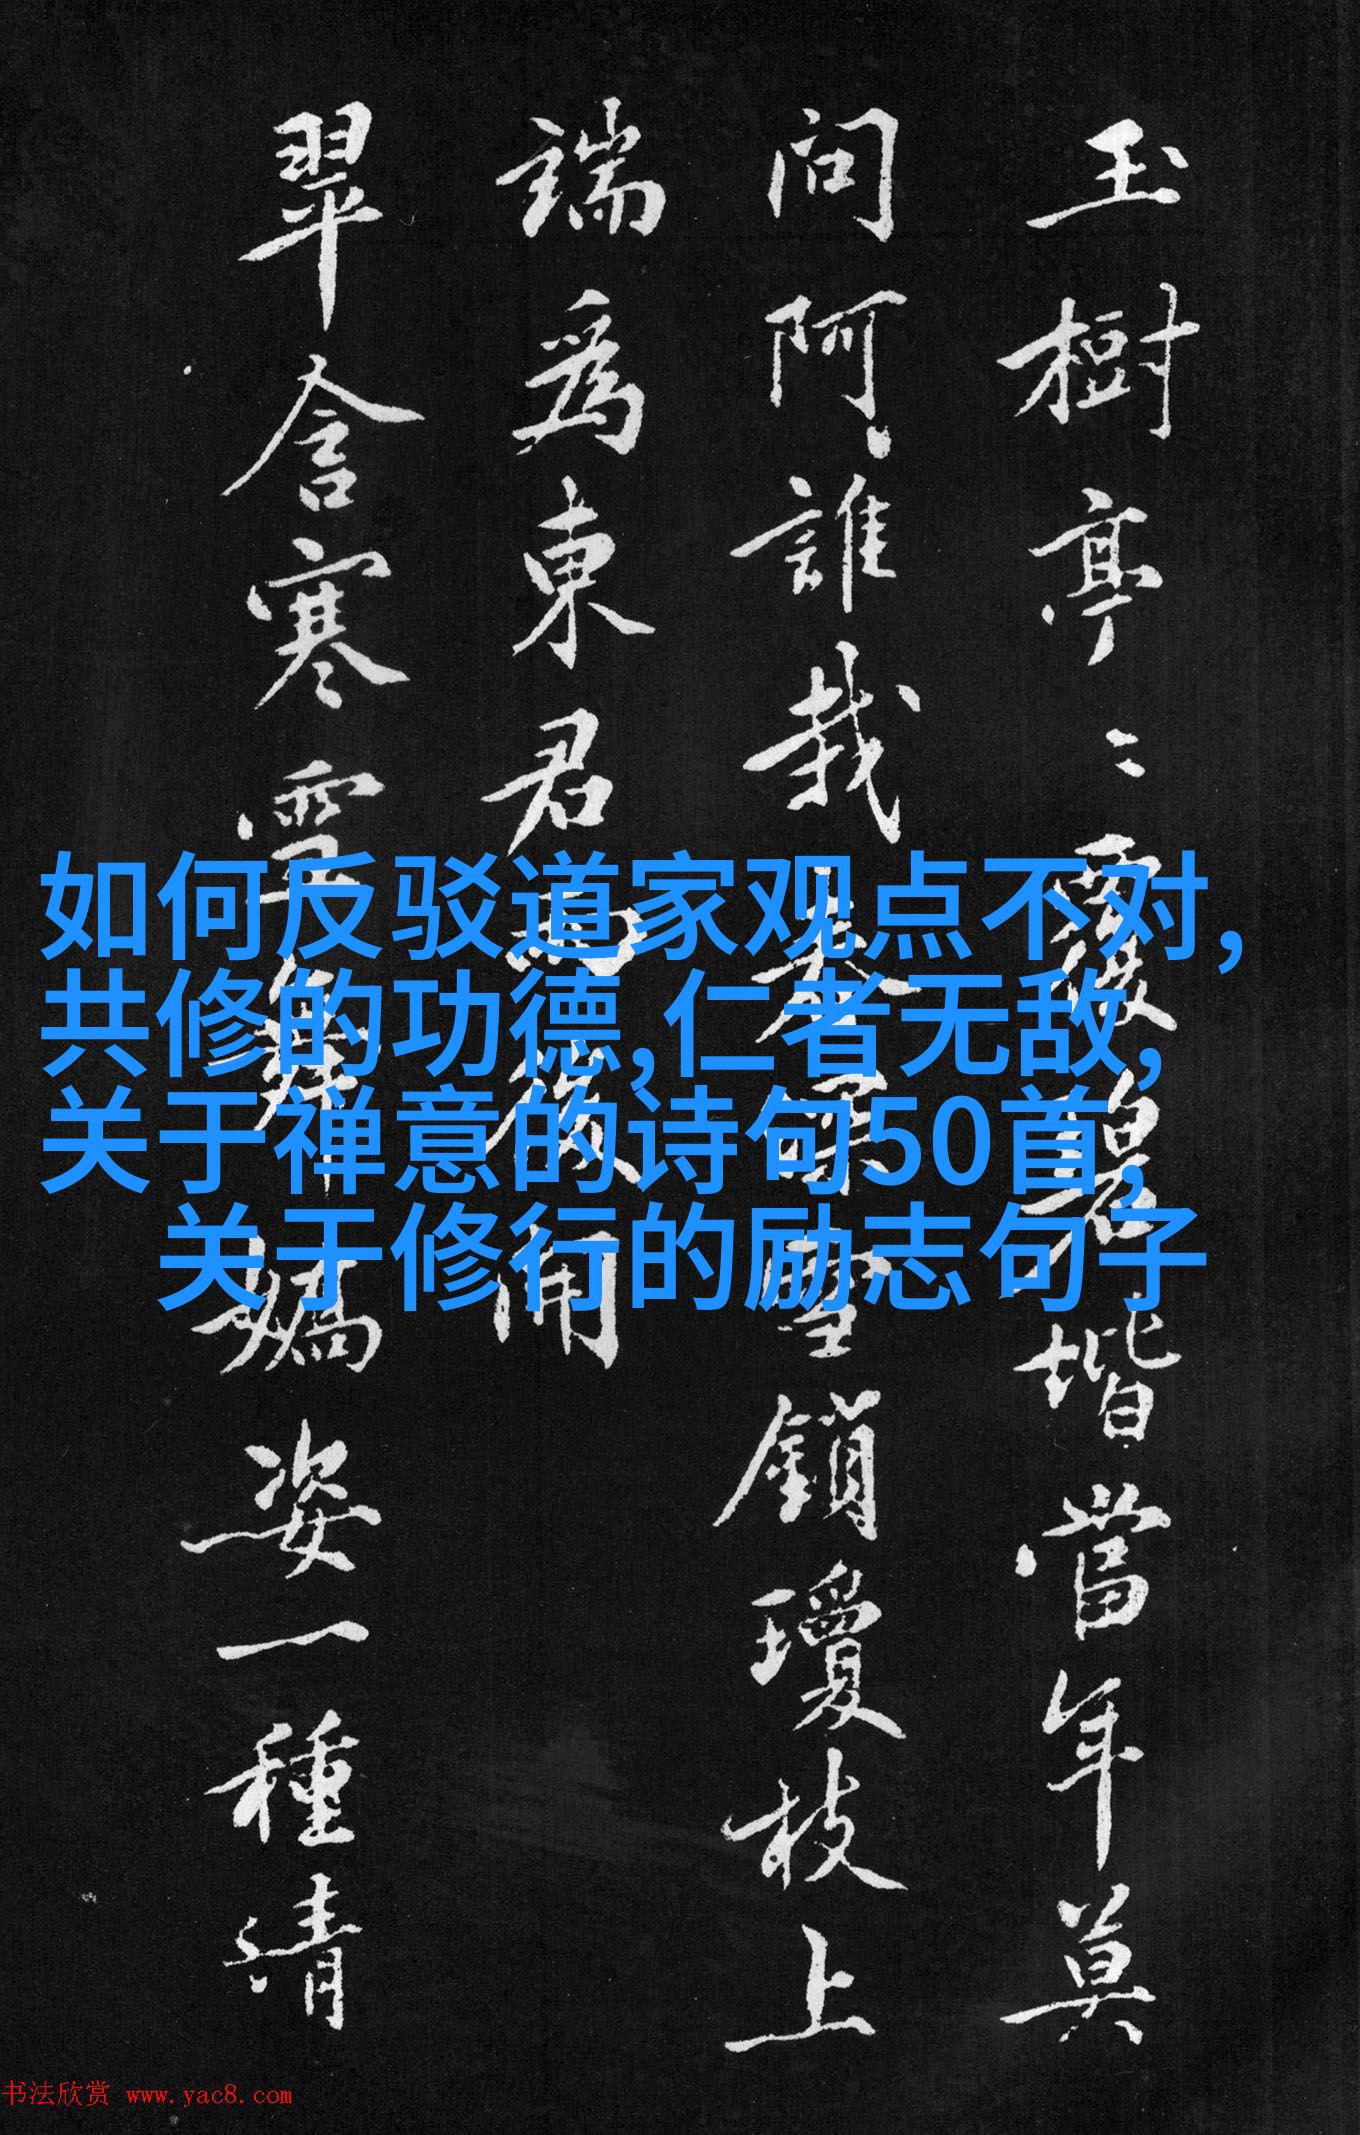 玉樹亭〻覆碧堦當年莫
問阿誰栽雪鎖瓊枝上
端為東君後開
翠含寒雪舞嬌姿一種清
如何反驳道家观点不对,
共修的功德,仁者无敌,
关于禅意的诗句50首,
关于修行的励志句子
书法欣赏 www.yac8.com